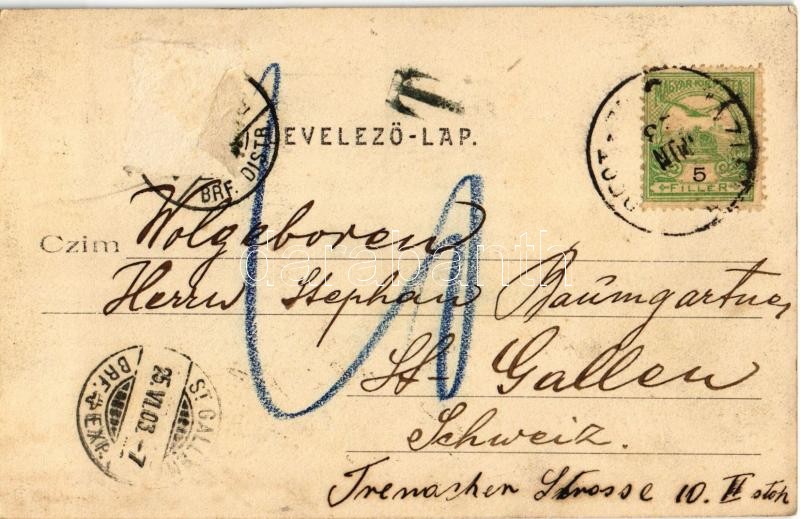 T
LEVELEZŐ-LAP.
BRF. DISTR
MAGYAR KIR. POSTA
5
FILLER
Czim Wolgeboren
Herrn Stephan Baumgartner
St. Gallen
Schweiz.
Strosse 10. II stoh
ST. GALLEN
25.VI.03.-7
BRF. EXP.
10
darabanth